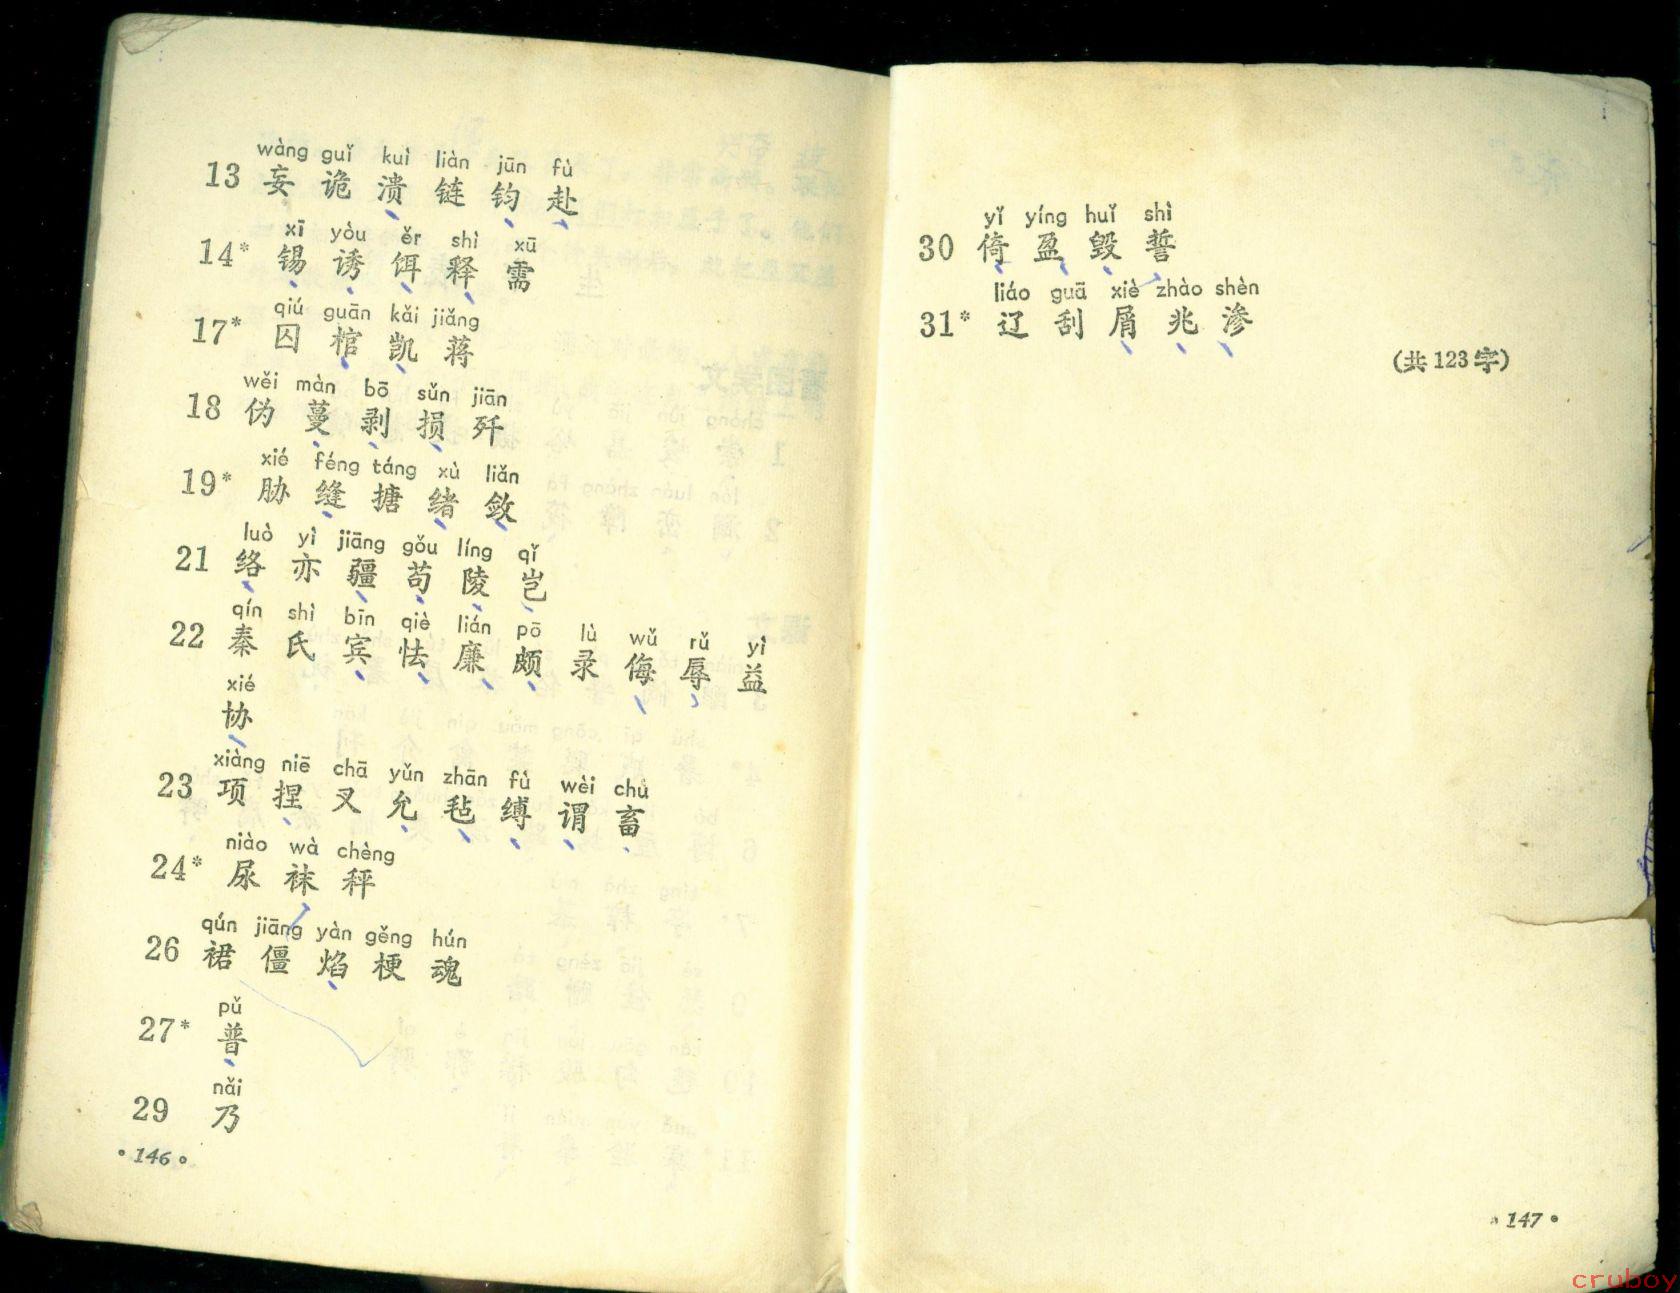 wàng guǐ kuì liàn jūn fù
13 妄 诡 溃 链 钧 赴
xī yòu ěr shì xū
14* 锡 诱 饵 释 需
qiú guān kǎi jiǎng
17* 囚 棺 凯 蒋
wěi màn bō sǔn jiān
18 伪 蔓 剥 损 歼
xié féng táng xù liǎn
19* 胁 缝 搪 绪 敛
luò yì jiāng gǒu líng qǐ
21 络 亦 疆 苟 陵 岂
qín shì bīn qiè lián pō lù wǔ rǔ yì
22 秦 氏 宾 怯 廉 颇 录 侮 辱 益
xié
协
xiàng niē chā yǔn zhān fù wèi chù
23 项 捏 叉 允 毡 缚 谓 畜
niào wà chèng
24* 尿 袜 秤
qún jiāng yàn gěng hún
26 裙 僵 焰 梗 魂
pǔ
27* 普
nǎi
29 乃
•146•
yǐ yíng huǐ shì
30 倚 盈 毁 誓
liáo guā xiè zhào shèn
31* 辽 刮 屑 兆 渗
(共123字)
•147•
cruboy